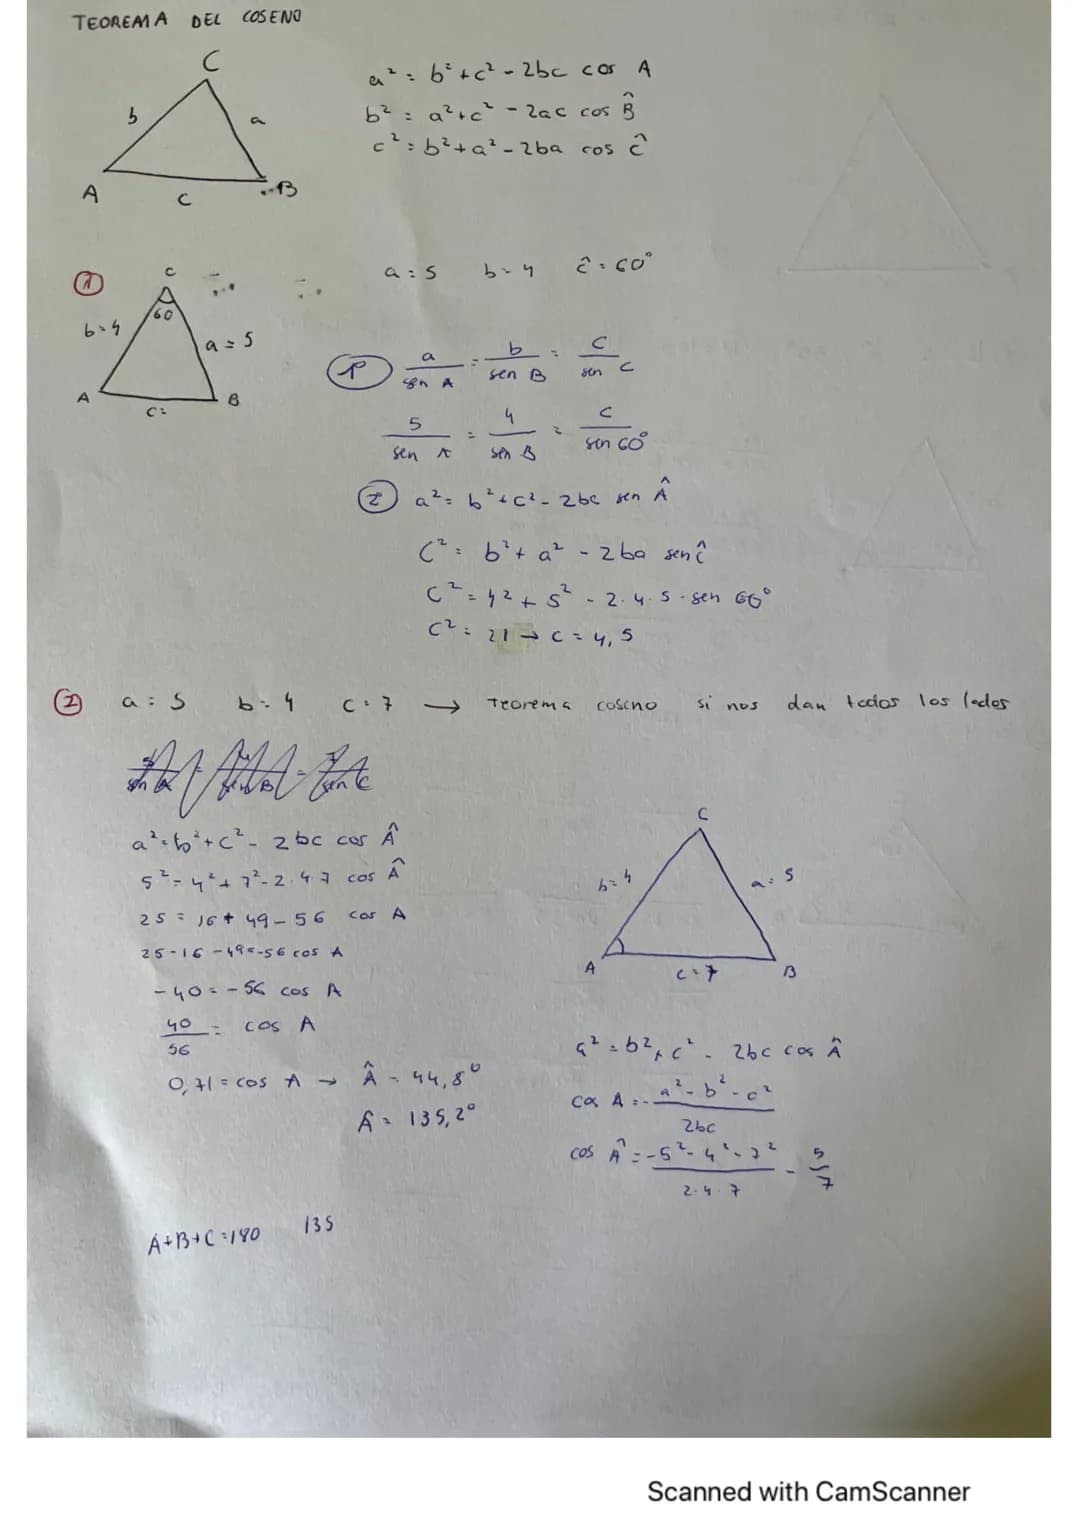 TEOREMA DEL COSENO
C
b
a
A
c
B
a² = b² + c² - 2bc cos A
b² = a² + c² - 2ac cos B̂
c² = b² + a² - 2ba cos ĉ
①
c
60
b=4
a = 5
A
C=
B
a = 5 b = 4 ĉ = 60°
① a/sen A = b/sen B = c/sen C
5/sen A = 4/sen B = c/sen 60°
② a² = b² + c² - 2bc sen Â
C² = b² + a² - 2ba sen ĉ
C² = 4² + 5² - 2·4·5·sen 60°
C² = 21 → c = 4,5
② a = 5 b = 4 c = 7 → Teorema coseno si nos dan todos los lados
a² = b² + c² - 2bc cos Â
5² = 4² + 7² - 2·4·7 cos Â
25 = 16 + 49 - 56 cos A
25 - 16 - 49 = -56 cos A
-40 = -56 cos A
40/56 = cos A
0,71 = cos A → Â = 44,8°
Â = 135,2°
A+B+C=180 135
C
b=4
a=5
A
c=7
B
a² = b² + c² - 2bc cos Â
cos A = - a² - b² - c² / 2bc
cos Â = - 5² - 4² - 7² / 2·4·7 = 5/7
Scanned with CamScanner